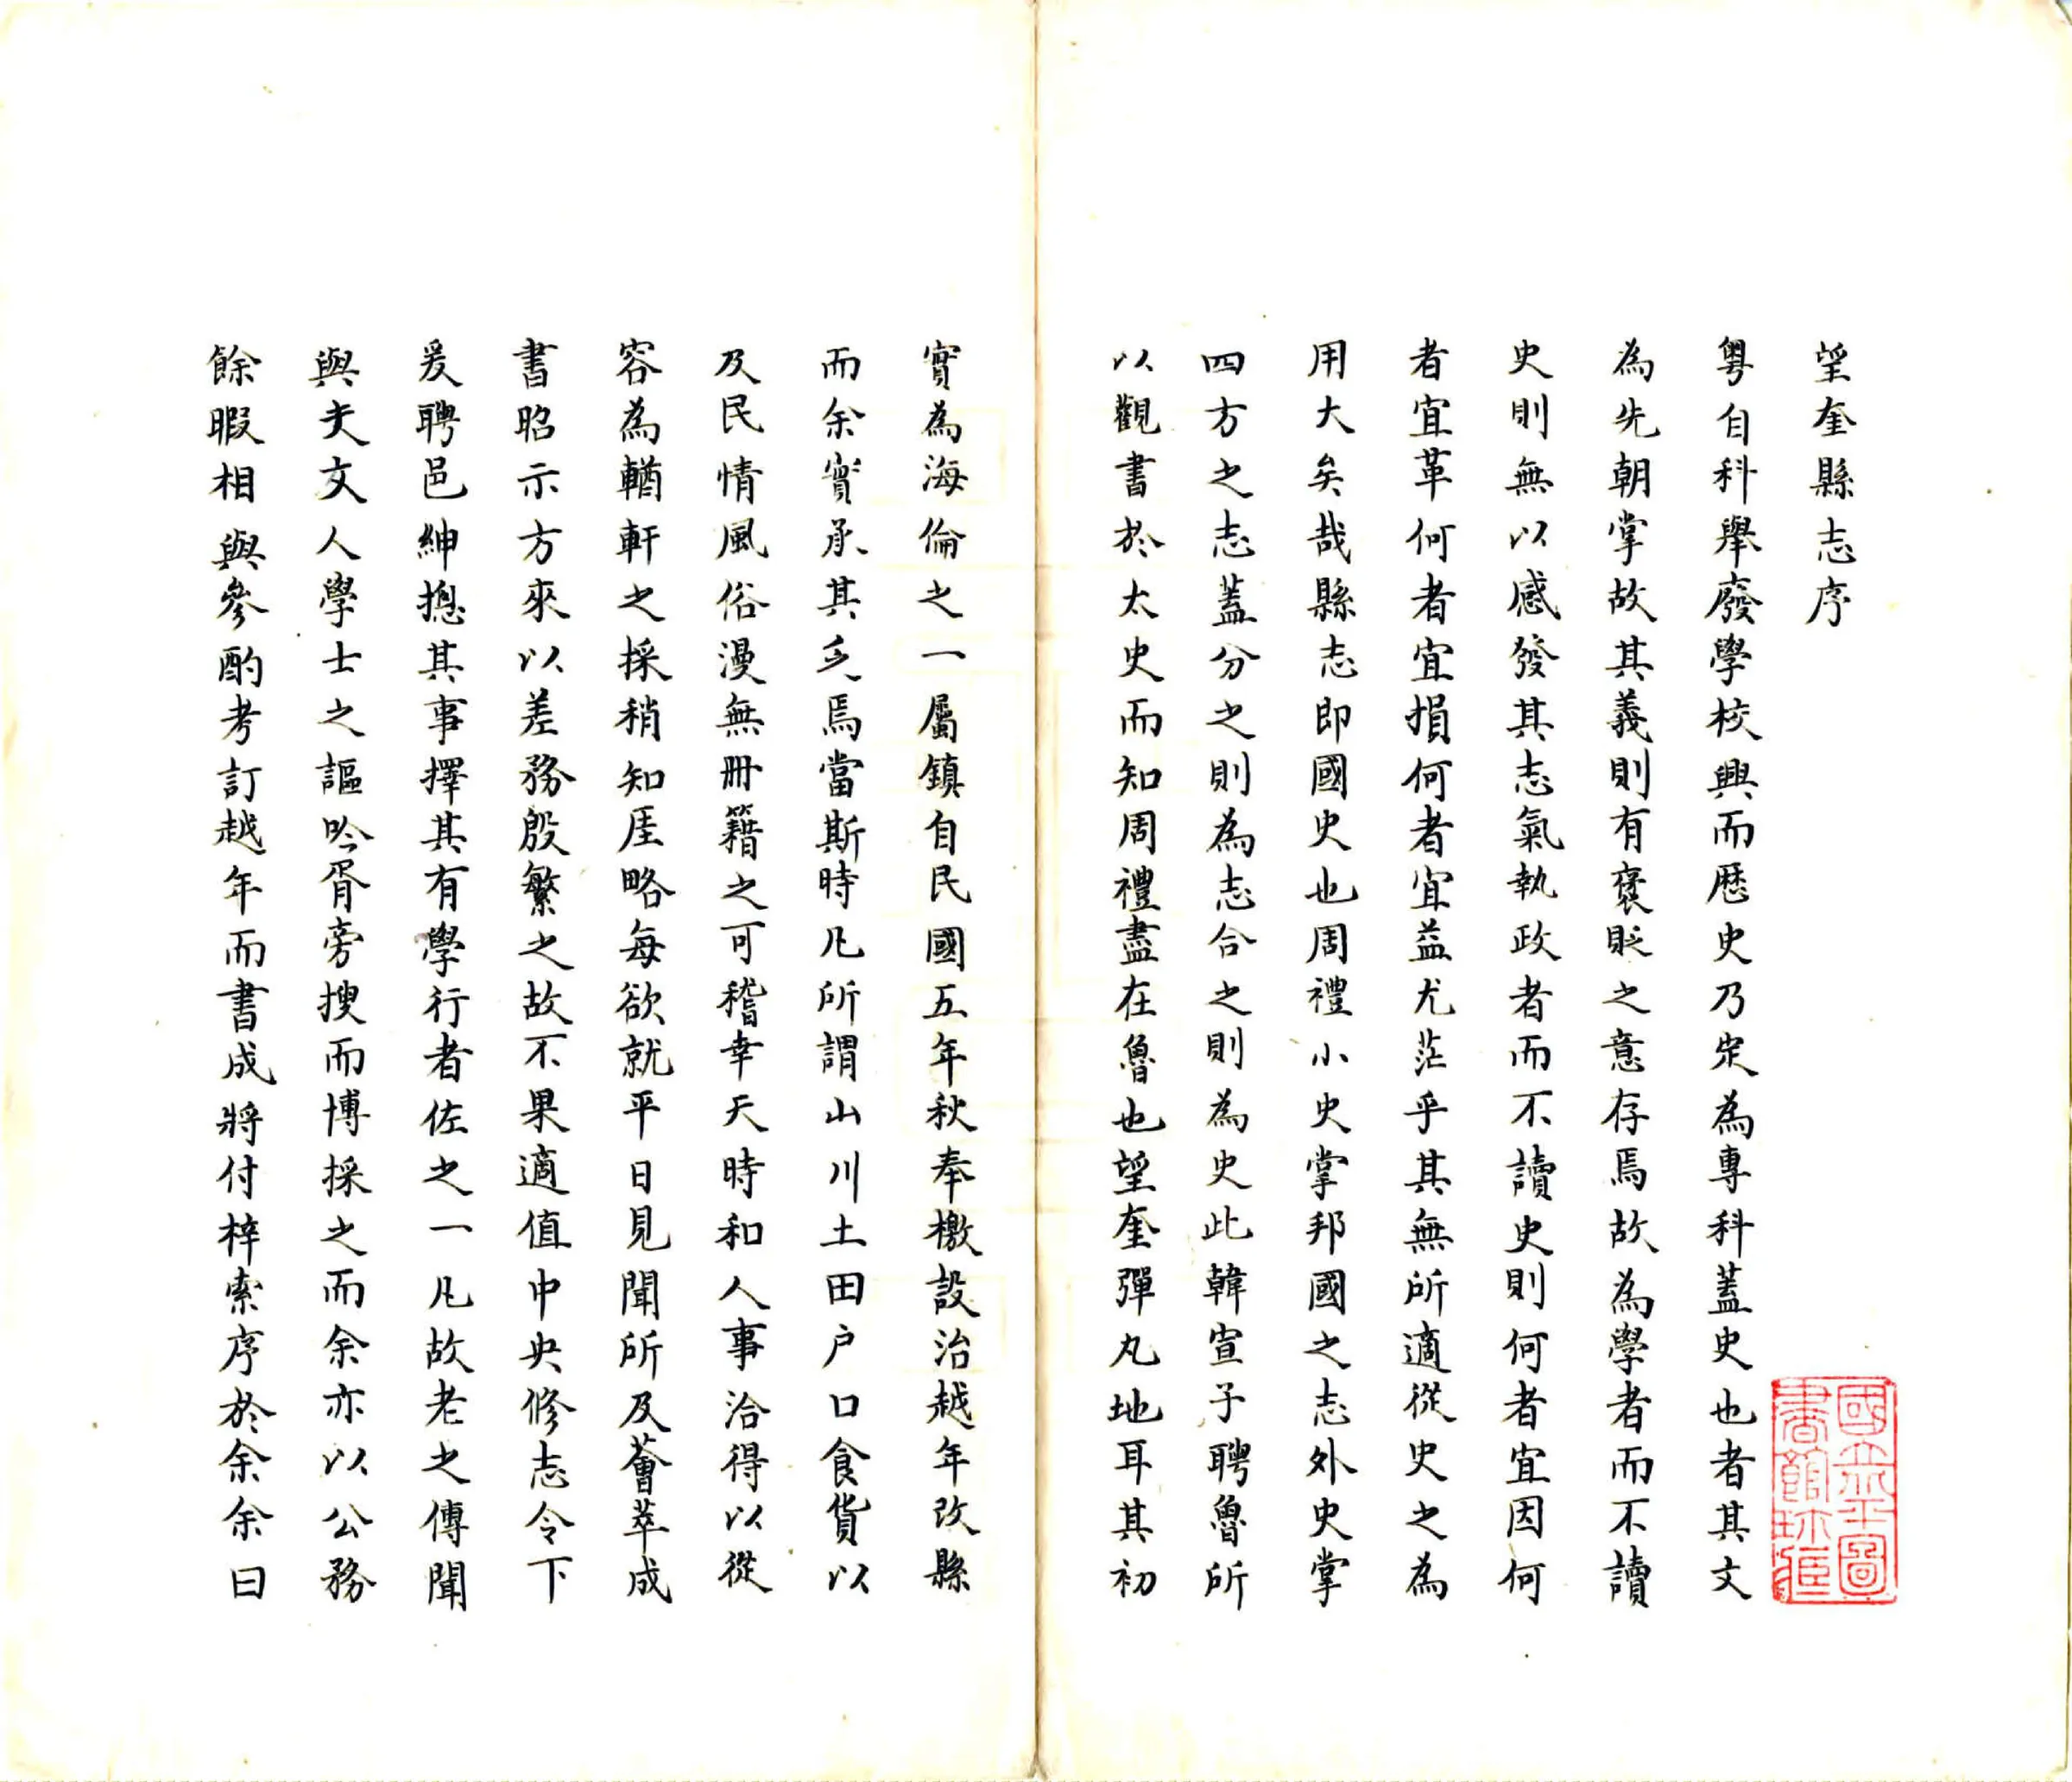 望奎縣志序
粤自科舉廢學校興而歷史乃定為專科蓋史也者其文
為先朝掌故其義則有褒貶之意存焉故為學者而不讀
史則無以感發其志氣執政者而不讀史則何者宜因何
者宜革何者宜損何者宜益尤茫乎其無所適從史之為
用大矣哉縣志即國史也周禮小史掌邦國之志外史掌
四方之志蓋分之則為志合之則為史此韓宣子聘魯所
以觀書於太史而知周禮盡在魯也望奎彈丸地耳其初
實為海倫之一屬鎮自民國五年秋奉檄設治越年改縣
而余實承其乏焉當斯時凡所謂山川土田户口食貨以
及民情風俗漫無冊籍之可稽幸天時和人事洽得以從
容為輶軒之採稍知厓略每欲就平日見聞所及薈萃成
書昭示方來以差務殷繁之故不果適值中央修志令下
爰聘邑紳摠其事擇其有學行者佐之一凡故老之傳聞
與夫文人學士之謳吟胥旁搜而博採之而余亦以公務
餘暇相與參酌考訂越年而書成將付梓索序於余余曰
國立北平圖
書館珍藏